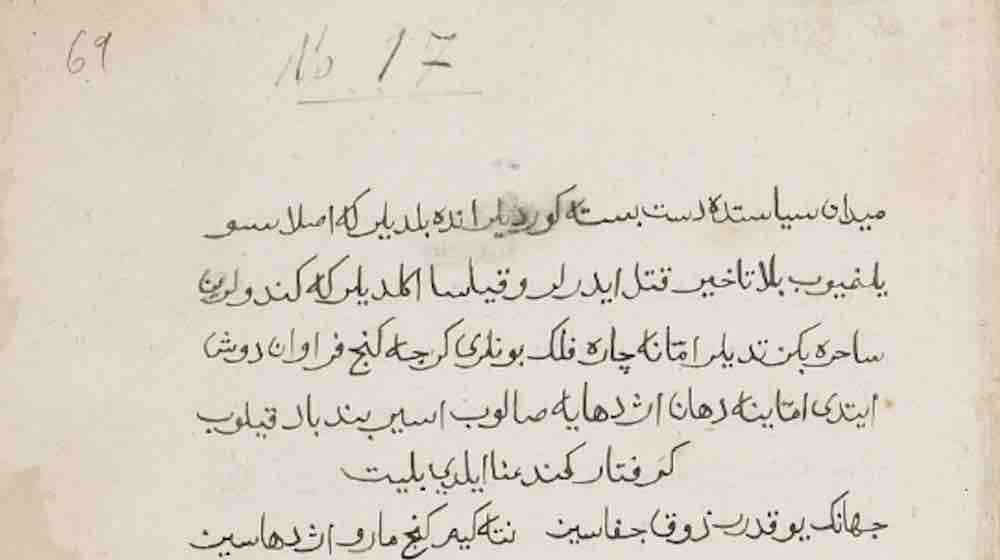 69
No 17
میدان سیاستده دست بسته کوردیلر انده بلدیلر که اصلا سو
یلنمیوب بلا تاخیر قتل ایدرلر و قیلسا اکلدیلر که کندولرین
ساحره بکزتدیلر امّا نه چاره فلک بونلری کرچه کنج فراوان دوش
ایتدی امّا ینه دهان اژدهایه صالوب اسیر بند بلا قیلوب
کرفتار کمند عنا ایلدی بیت
جهانک یوقدر ذوق جفاسین نته کیم کنج مار و اژدهاسین